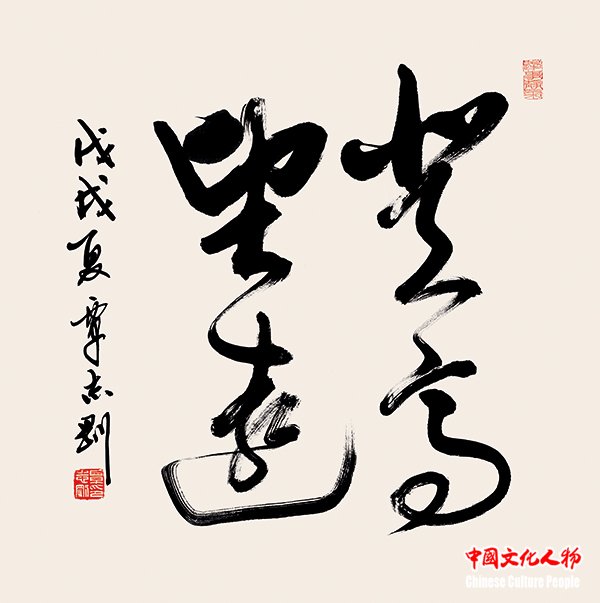 登高
望遠
戊戌夏覃志剛
中國文化人物
Chinese Culture People